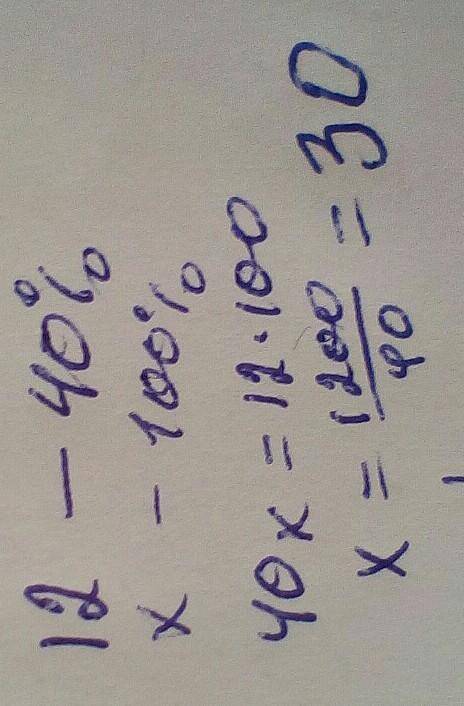 12 - 40%
x - 100%
40x = 12·100
x = 1200/40 = 30